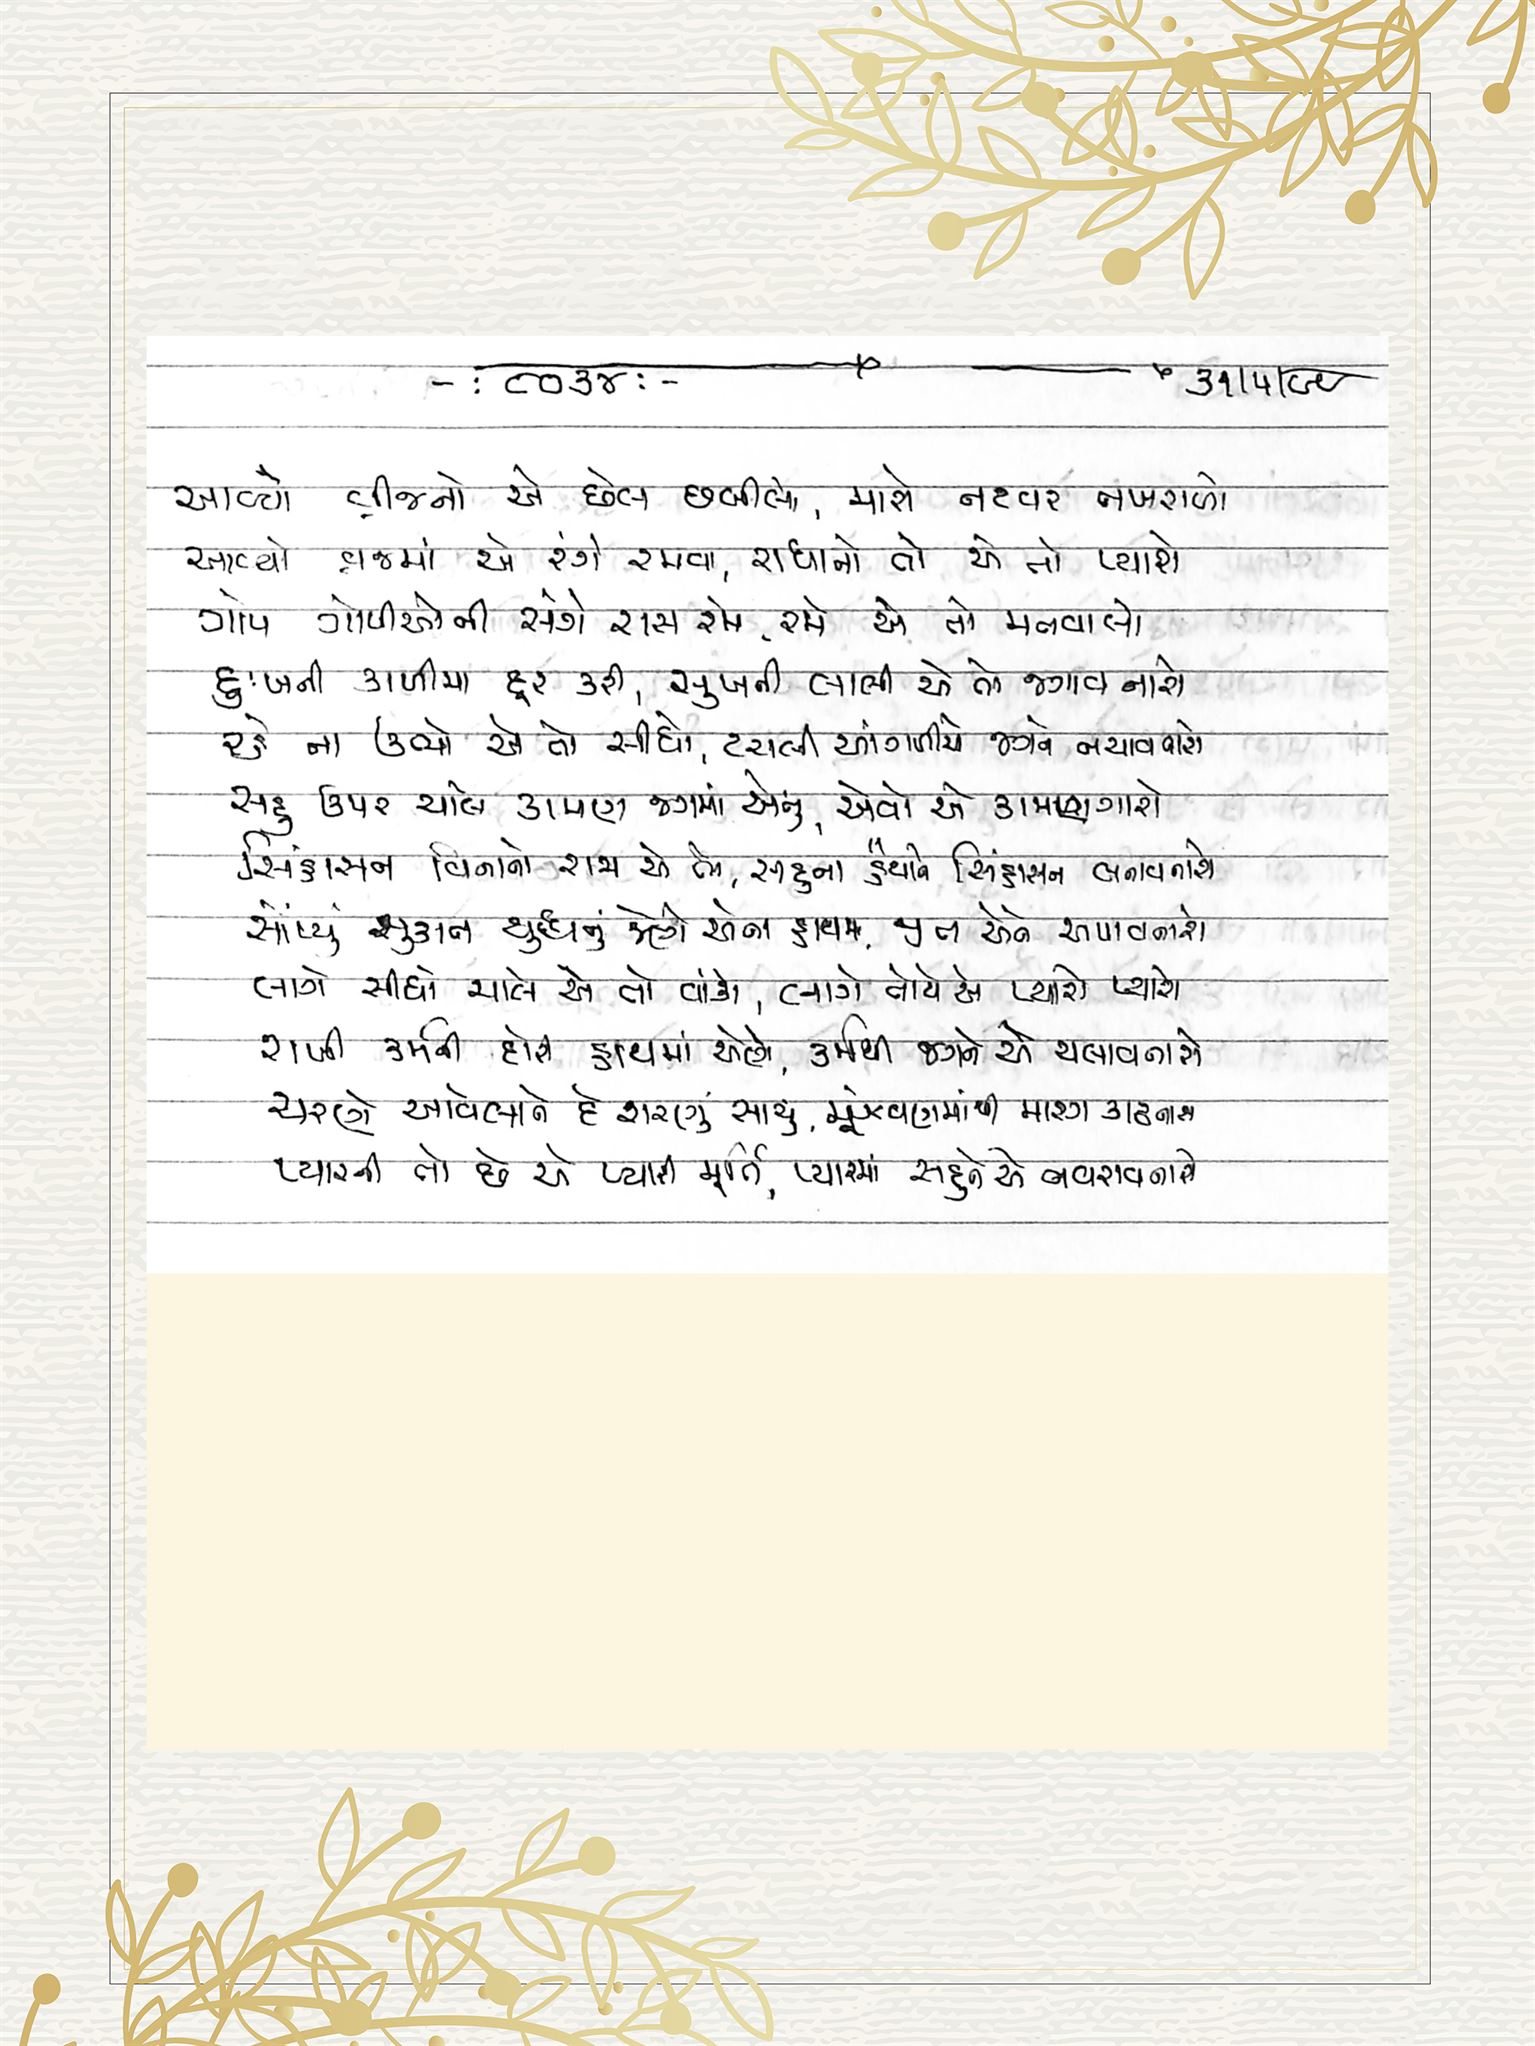 -: ૮૦૩૪ :- ૩૧/૫/૯૯
આવ્યો બ્રીજનો એ છેલ છબીલો, મારો નટવર નખરાળો
આવ્યો વ્રજમાં એ રંગે રમવા, રાધાનો તો એ તો પ્યારો
ગોપ ગોપીઓની સંગે રાસ રમે, રમે એ તો મનવાલો
દુઃખની કાળીમા દૂર કરી, સુખની લાલી એ તો જગાવનારો
રહે ના ઊભો એ તો સીધો, ટચલી આંગળીએ જગને નચાવનારો
સહુ ઉપર ચાલે કામણ જગમાં એનું, એવો એ કામણગારો
સિંહાસન વિનાનો રાજા એ તો, સહુના હૈયાને સિંહાસન બનાવનારો
સોંપ્યું સુકાન યુદ્ધનું જેણે એના હાથમાં, જીત એને અપાવનારો
લાગે સીધો ચાલે એ તો વાંકો, લાગે તોયે એ પ્યારો પ્યારો
રાખી કર્મની દોરી હાથમાં એણે, કર્મથી જગને એ ચલાવનારો
ચરણે આવેલાને દે શરણું સાચું, મૂંઝવણમાંથી મારગ કાઢનારો
પ્યારની તો છે એ પ્યારી મૂર્તિ, પ્યારમાં સહુને એ નવરાવનારો